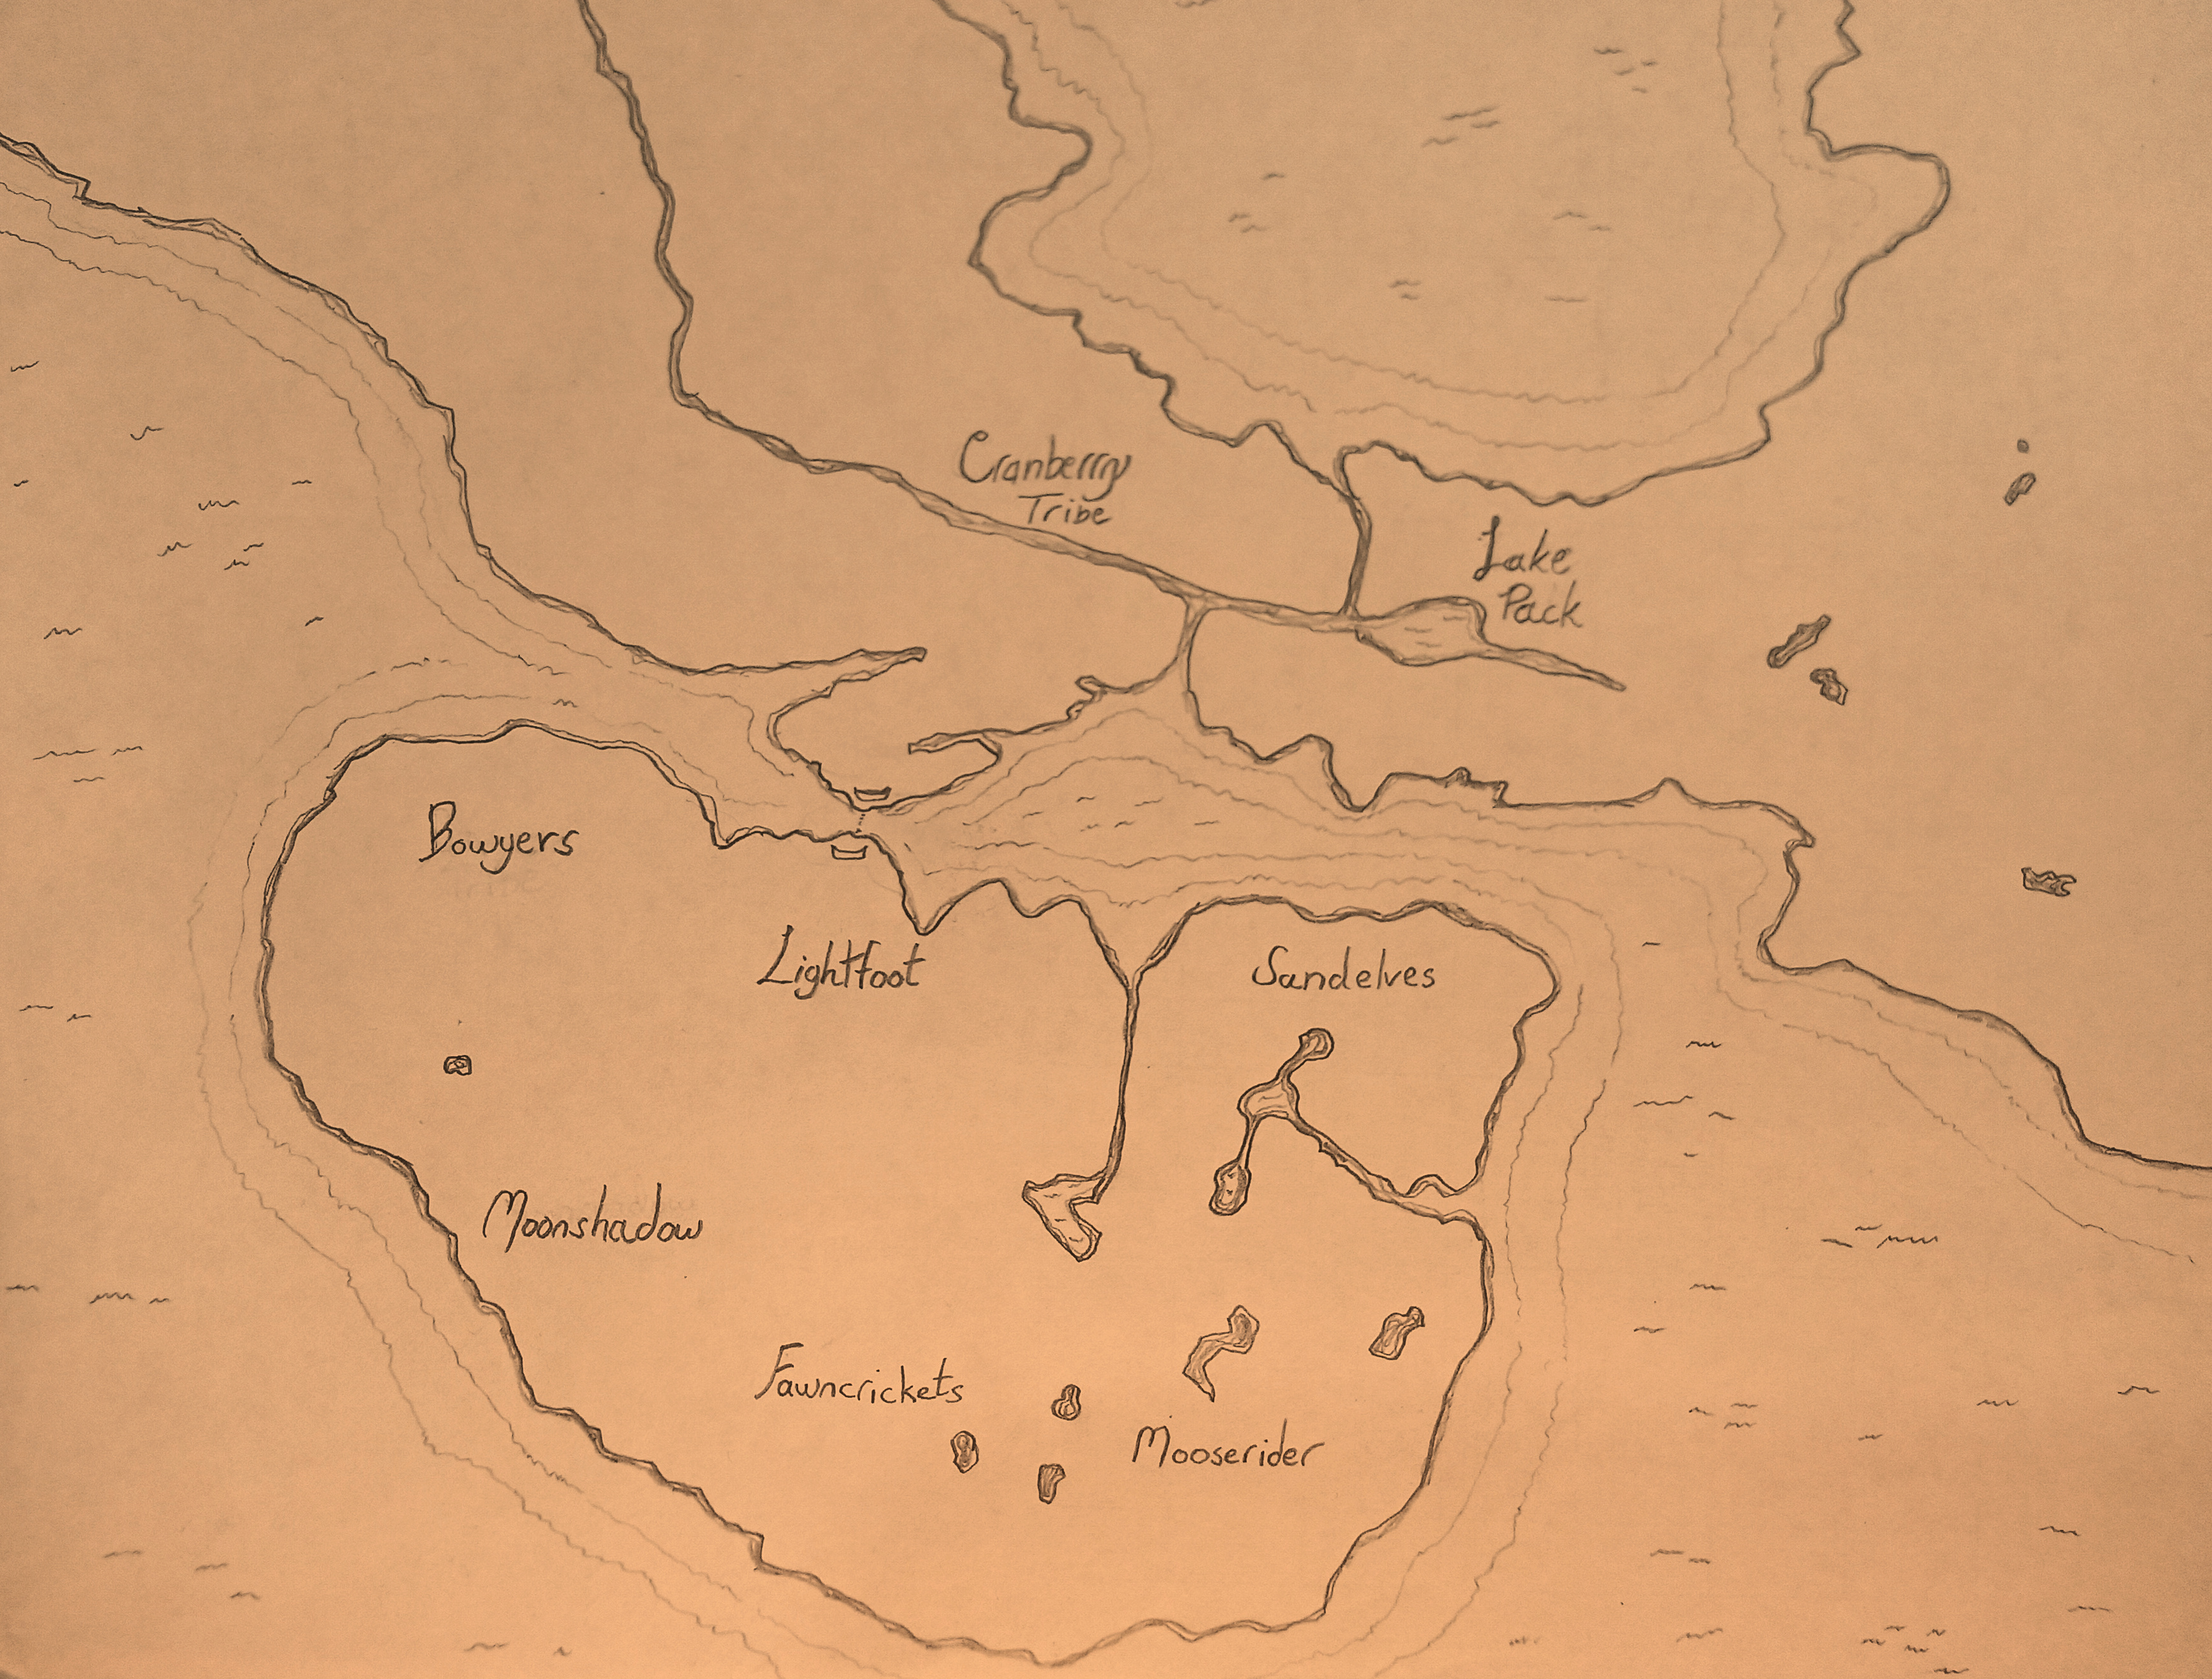 Cranberry
Tribe
Lake
Pack
Bowyers
Lightfoot
Sandelves
Moonshadow
Fawncrickets
Mooserider